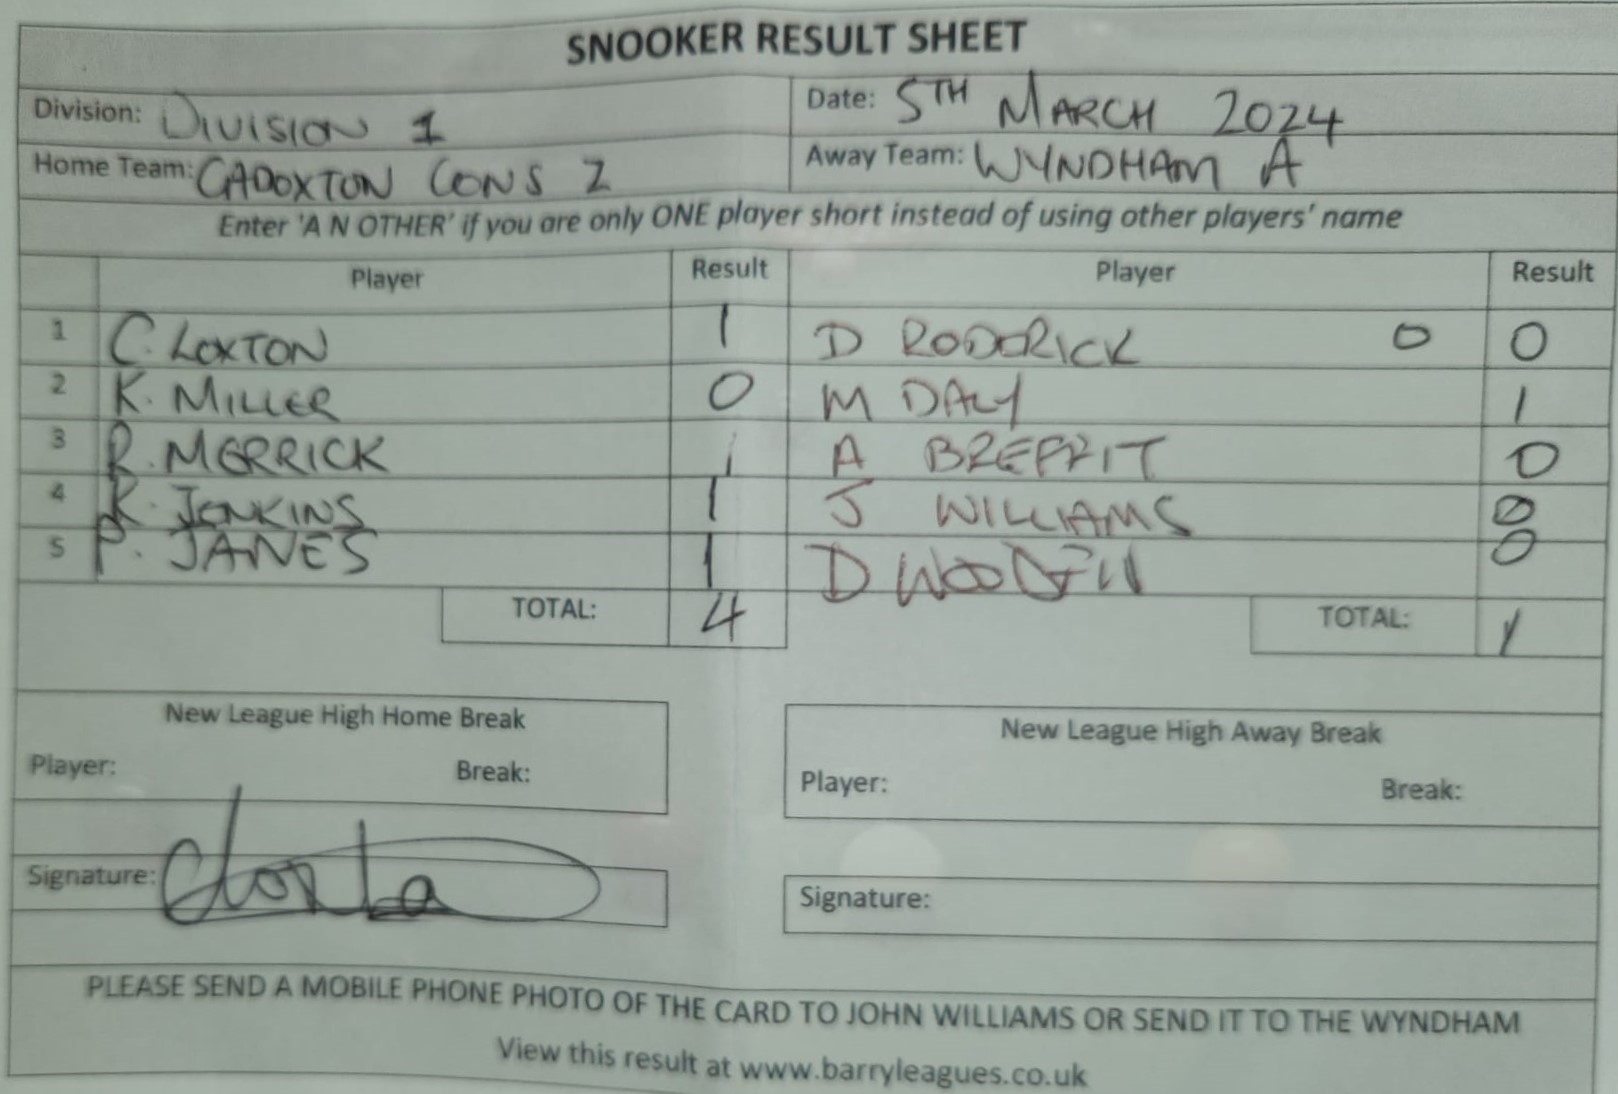 SNOOKER RESULT SHEET
Division: DIVISION 1 Date: 5TH MARCH 2024
Home Team: CADOXTON CONS 2 Away Team: WYNDHAM A
Enter 'A N OTHER' if you are only ONE player short instead of using other players' name
Player Result Player Result
1 C. LOXTON 1 D RODERICK 0 0
2 K. MILLER 0 M DALY 1
3 R. MERRICK 1 A BREFFIT 0
4 K. JENKINS 1 J WILLIAMS 0
5 P. JANES 1 D 0
TOTAL: 4 TOTAL: 1
New League High Home Break New League High Away Break
Player: Break: Player: Break:
Signature: Signature:
PLEASE SEND A MOBILE PHONE PHOTO OF THE CARD TO JOHN WILLIAMS OR SEND IT TO THE WYNDHAM
View this result at www.barryleagues.co.uk